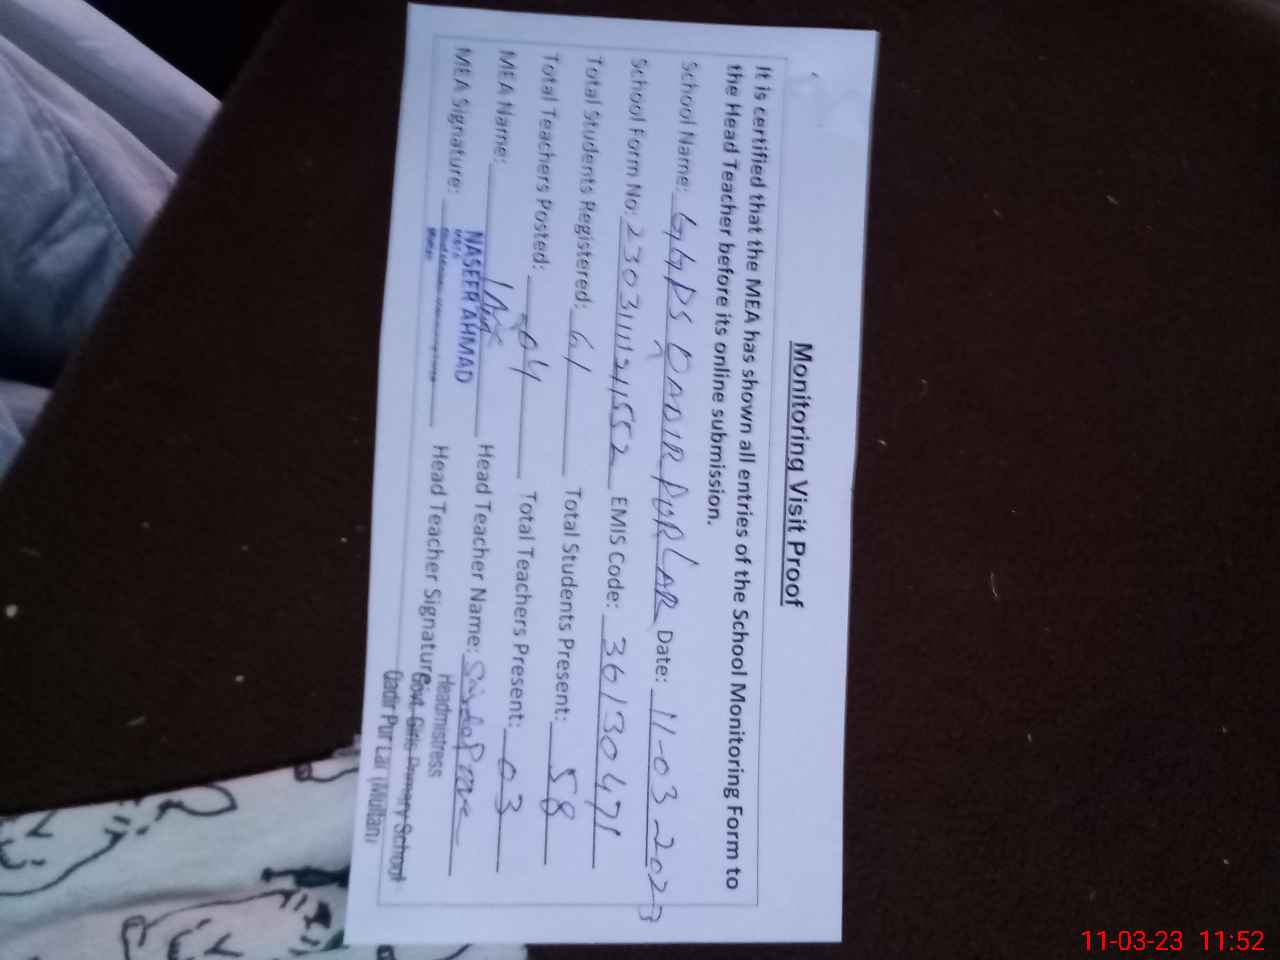 Monitoring Visit Proof
It is certified that the MEA has shown all entries of the School Monitoring Form to
the Head Teacher before its online submission.
School Name: GGPS QADIR PUR LAR Date: 11-03-2023
School Form No: EMIS Code: 36130471
Total Students Registered: 61 Total Students Present: 58
Total Teachers Posted: 04 Total Teachers Present: 03
MEA Name: Head Teacher Name:
MEA Signature: Head Teacher Signature:
NASEER AHMAD
Headmistress
Govt. Girls Primary School
Qadir Pur Lar (Multan)
11-03-23 11:52